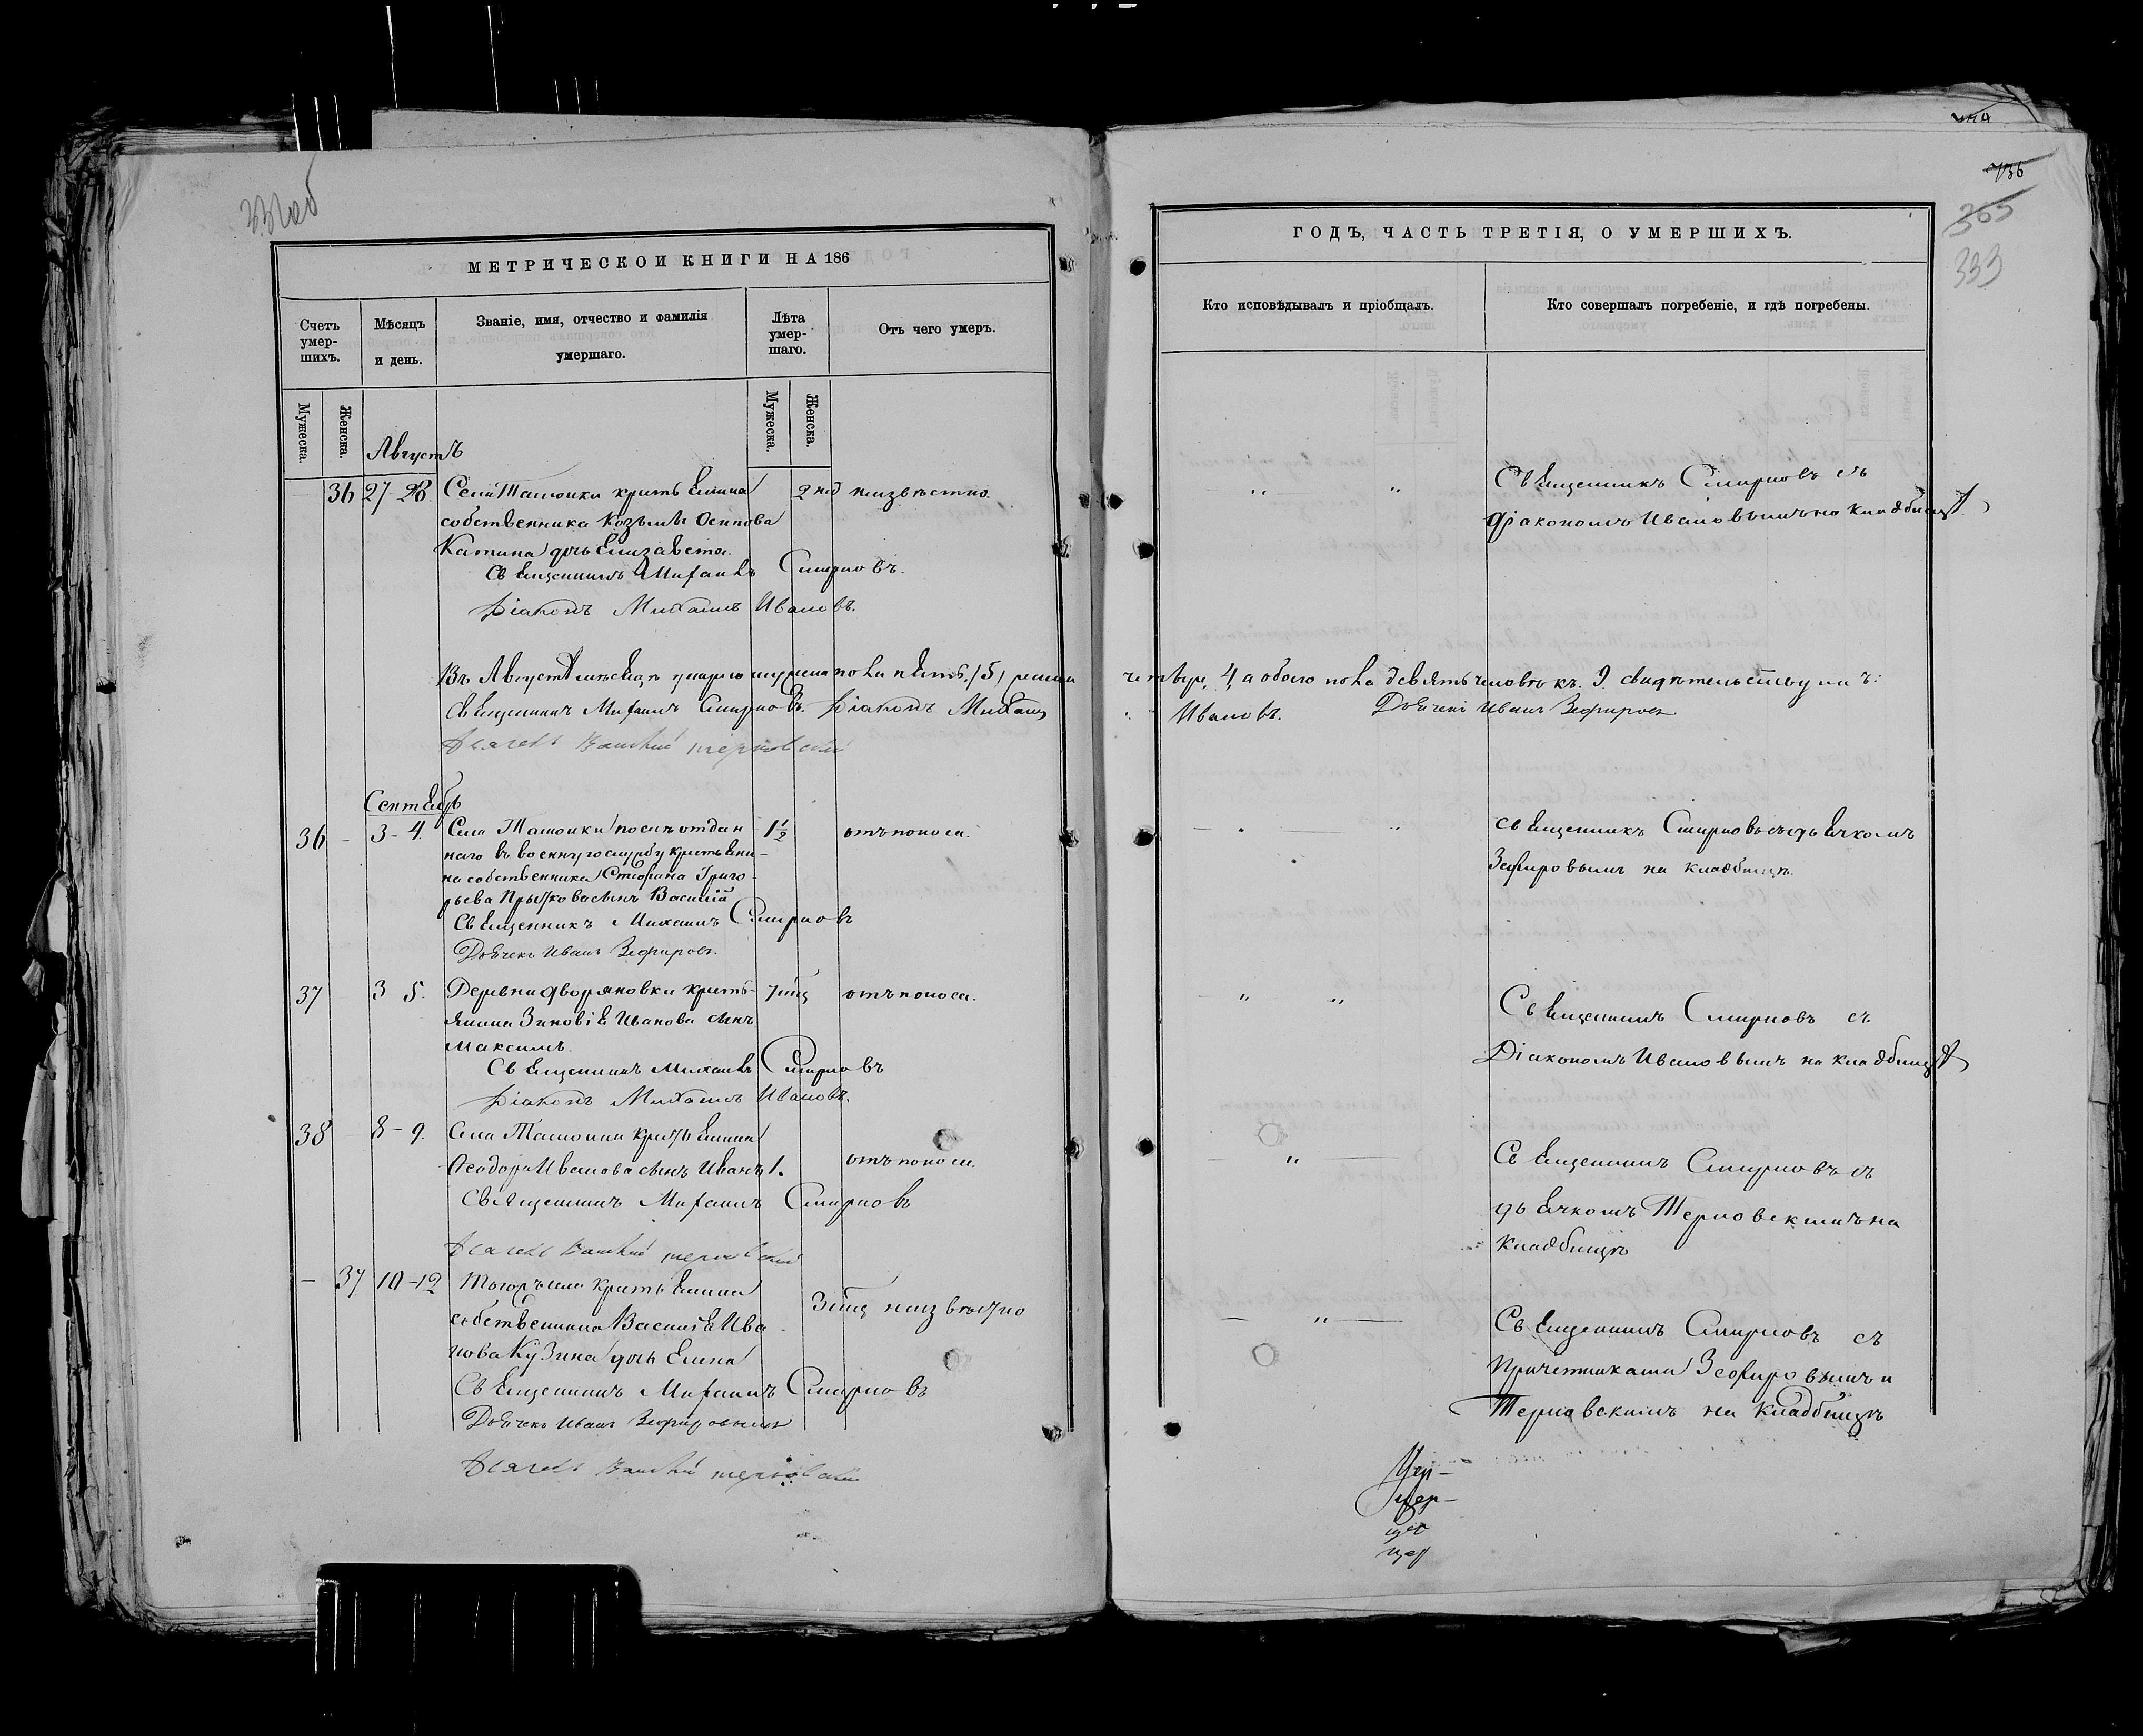 333
МЕТРИЧЕСКОЙ КНИГИ НА 186
Счетъ умер-шихъ.
Мѣсяцъ и день.
Званіе, имя, отчество и фамилія умершаго.
Лѣта умер-шаго.
Отъ чего умеръ.
Мужеска.
Женска.
Мужеска.
Женска.
Августъ
36 27 28. Села Ташолки крестьянина 2 нед неизвѣстно.
собственника Козьмы Осипова
Катина дочь Елизавета.
Священникъ Михаилъ Смирновъ.
Діаконъ Михаилъ Ивановъ.
Въ Августѣ мѣсяцѣ умерло мужеска пола пять, 5, женска
Священникъ Михаилъ Смирновъ. Діаконъ Михаилъ
Сентябрь
36 - 3-4. Села Ташолки 1½ отъ поноса.
наго въ военную службу крестьяни-
на собственника Стефана Григо-
рьева сынъ Василій
Священникъ Михаилъ Смирновъ
Дьячекъ Иванъ Зефировъ.
37 3 5. Деревни Дворяновки кресть- 7 мѣц отъ поноса.
янина Зиновія Иванова сынъ
Максимъ.
Священникъ Михаилъ Смирновъ
Діаконъ Михаилъ Ивановъ.
38 8-9. Села Ташолки крестьянина
Ѳеодора Иванова сынъ Иванъ 1. отъ поноса.
Священникъ Михаилъ Смирновъ
- 37 10-12 Тогожъ села крестьянина
собственника Василія Ива- 3 мѣц неизвѣстно
нова Кузина дочь Елена
Священникъ Михаилъ Смирновъ
Дьячекъ Иванъ Зефировъ
ГОДЪ, ЧАСТЬ ТРЕТІЯ, О УМЕРШИХЪ.
136
Кто исповѣдывалъ и пріобщалъ.
Кто совершалъ погребеніе, и гдѣ погребены.
" " Священникъ Смирновъ съ
діакономъ Ивановымъ на кладбищѣ
четыре, 4, а обоего пола девять человѣкъ. 9. свидѣтельствуемъ:
Ивановъ. Дьячекъ Иванъ Зефировъ
священникъ Смирновъ съ дьячкомъ
Зефировымъ на кладбищѣ.
" " Священникъ Смирновъ съ
Діакономъ Ивановымъ на кладбищѣ
" Священникъ Смирновъ съ
дьячкомъ Терновскимъ на
кладбищѣ
" Священникъ Смирновъ съ
Причетниками Зефировымъ и
Терновскимъ на кладбищѣ